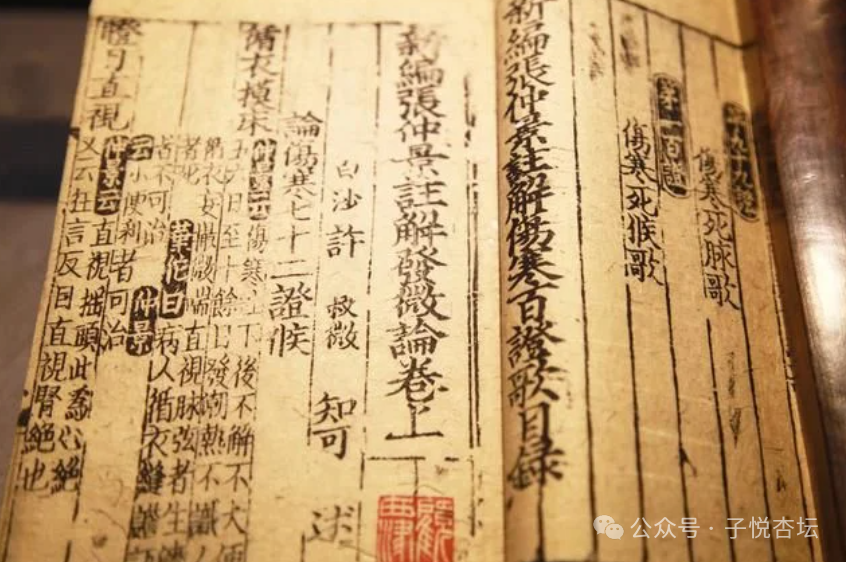 第九十九證
傷寒死脉歌
第一百證
傷寒死候歌
新編張仲景註解傷寒百證歌目録
新編張仲景註解發微論卷上
白沙許 叔微 知可 述
論傷寒七十二證候
循衣摸床
仲景云傷寒吐下後不解不大便
五六日至十餘日發潮熱不識人
循衣妄撮微喘直視脉弦者生濇
者死 華佗曰病人循衣縫譫語
者不可治 仲景
云小便利者可治
瞪目直視
仲景云直視摇頭此爲心絶
又云狂言反目直視腎絶也
公众号·子悦杏坛